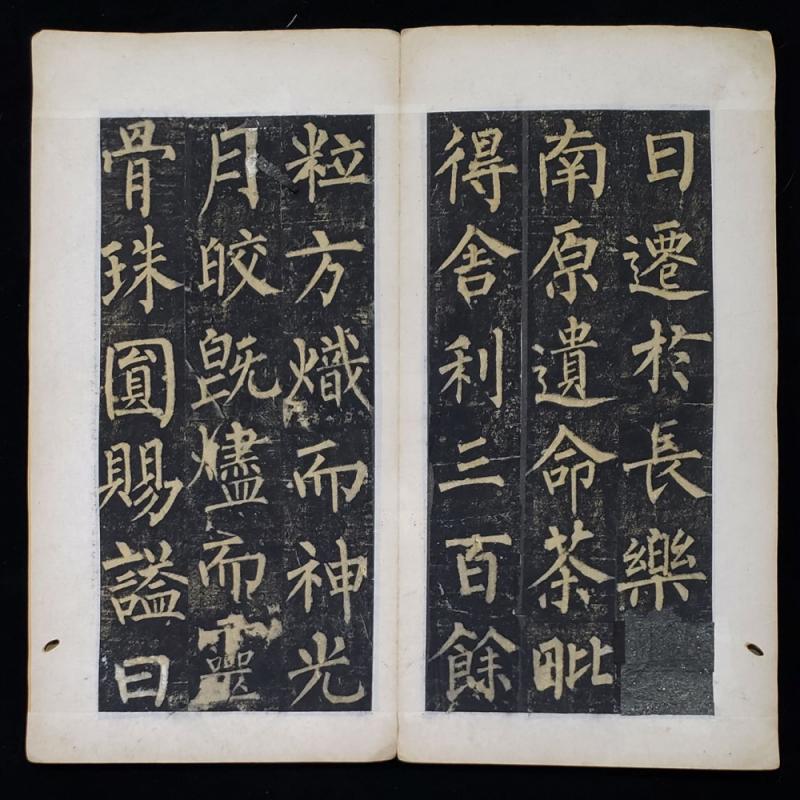 日遷於長樂
南原遺命茶毗
得舎利三百餘
粒方熾而神光
月皎旣燼而靈
骨珠圓賜謚曰